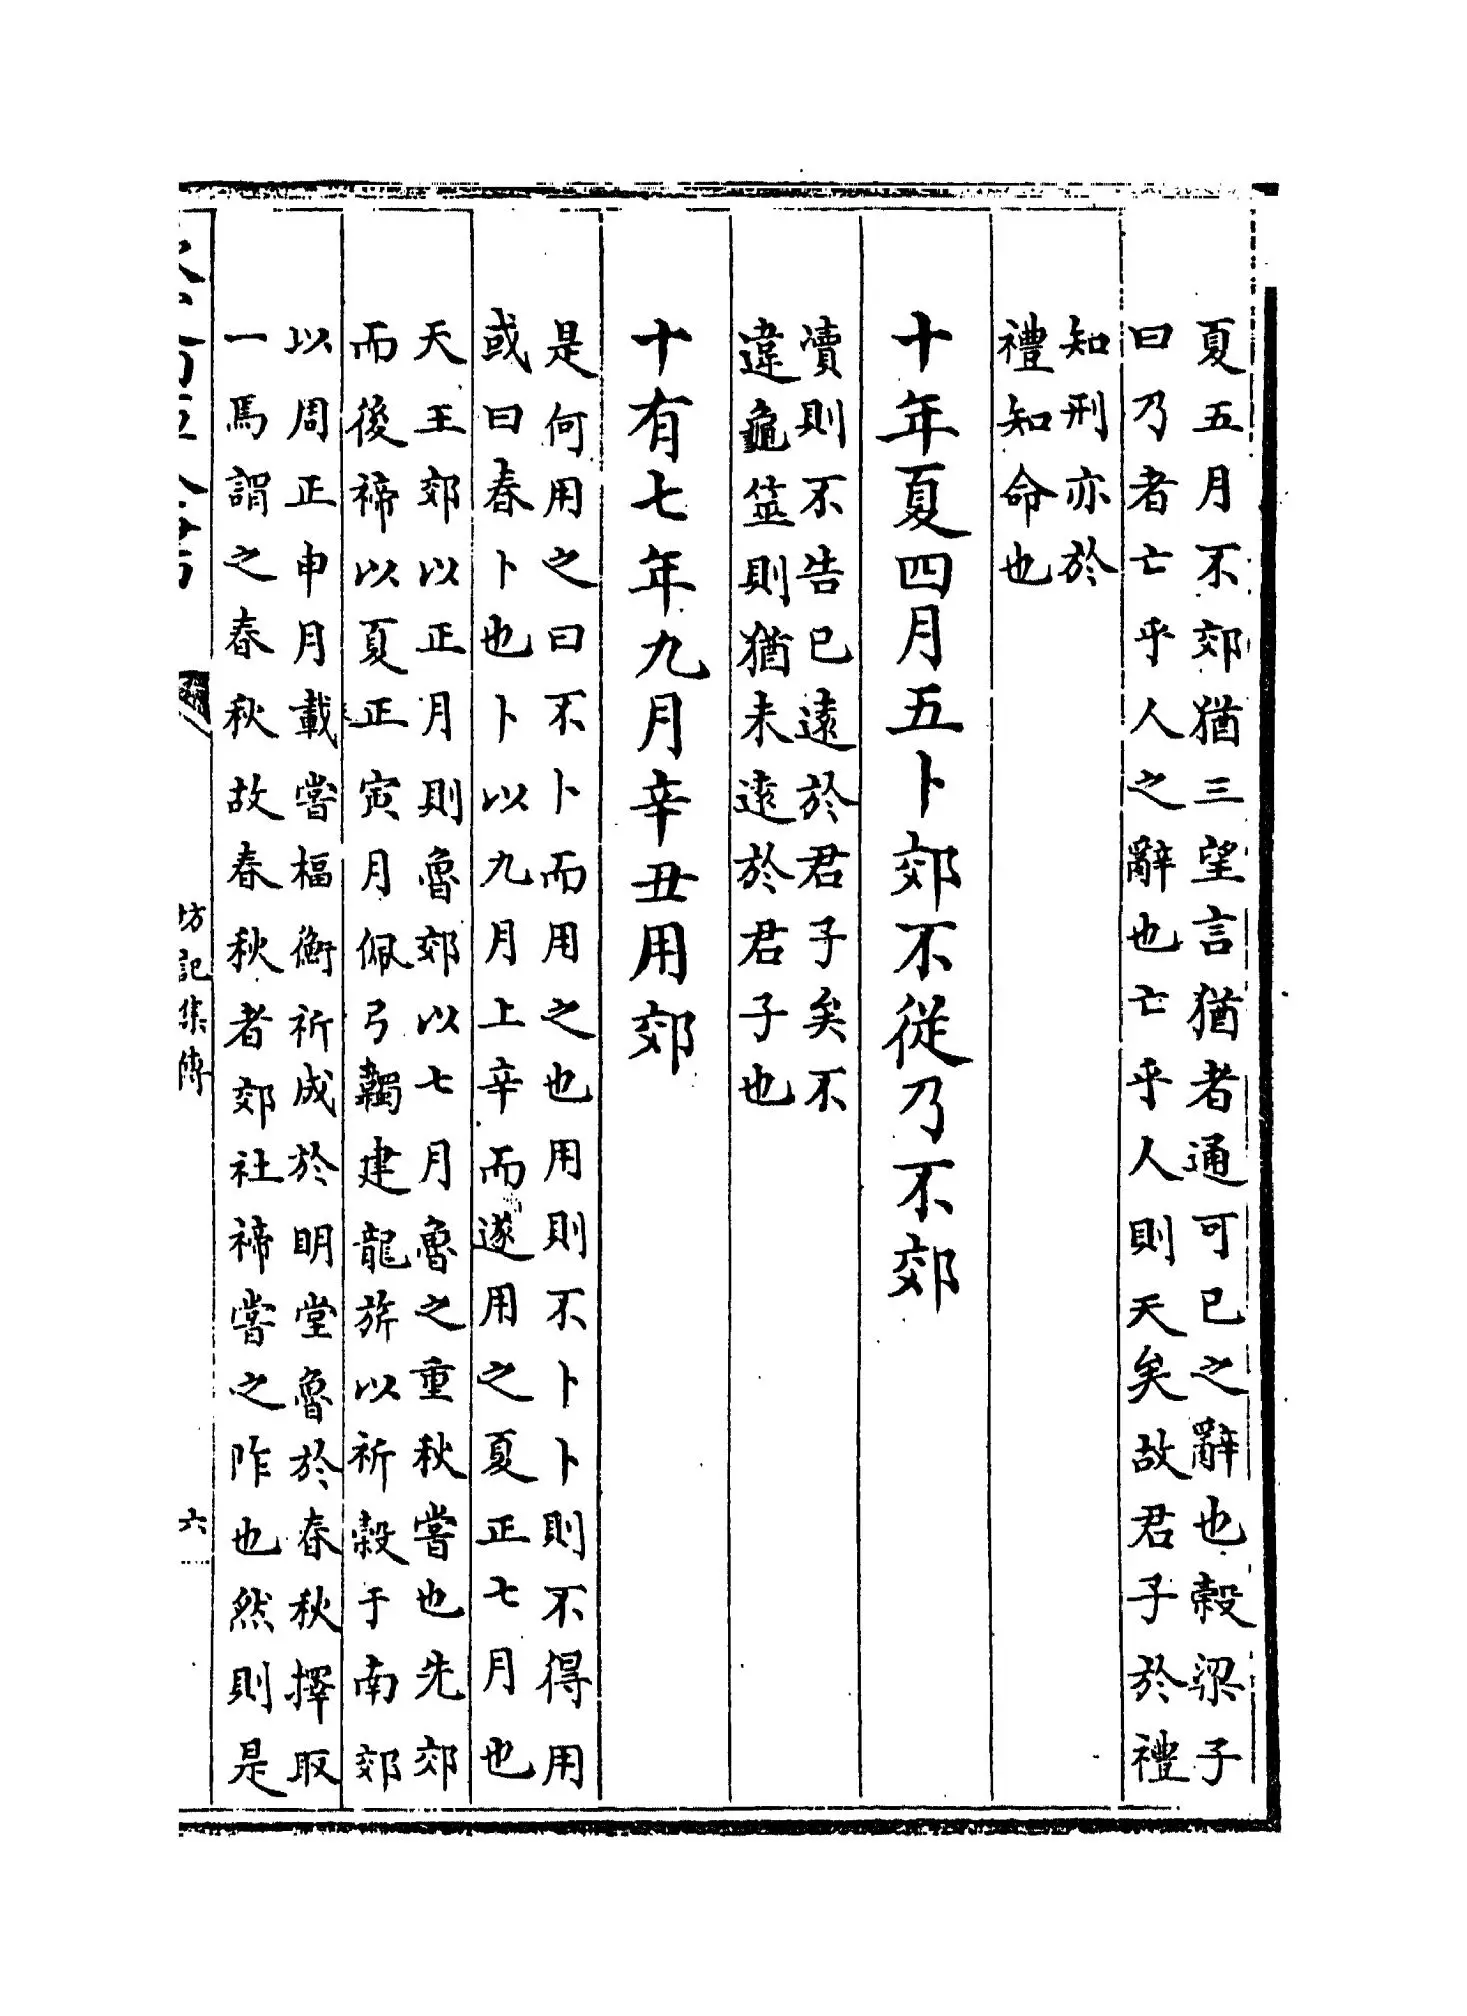 夏五月不郊猶三望言猶者通可已之辭也穀梁子
曰乃者亡乎人之辭也亡乎人則天矣故君子於禮
知刑亦於
禮知命也
十年夏四月五卜郊不從乃不郊
凟則不告已遠於君子矣不
違龜筮則猶未遠於君子也
十有七年九月辛丑用郊
是何用之曰不卜而用之也用則不卜卜則不得用
或曰春卜也卜以九月上辛而遂用之夏正七月也
天王郊以正月則魯郊以七月魯之重秋嘗也先郊
而後禘以夏正寅月佩弓韣建龍旂以祈穀于南郊
以周正申月載嘗楅衡祈成於明堂魯於春秋擇取
一焉謂之春秋故春秋者郊社禘嘗之阼也然則是
坊記集傳
六